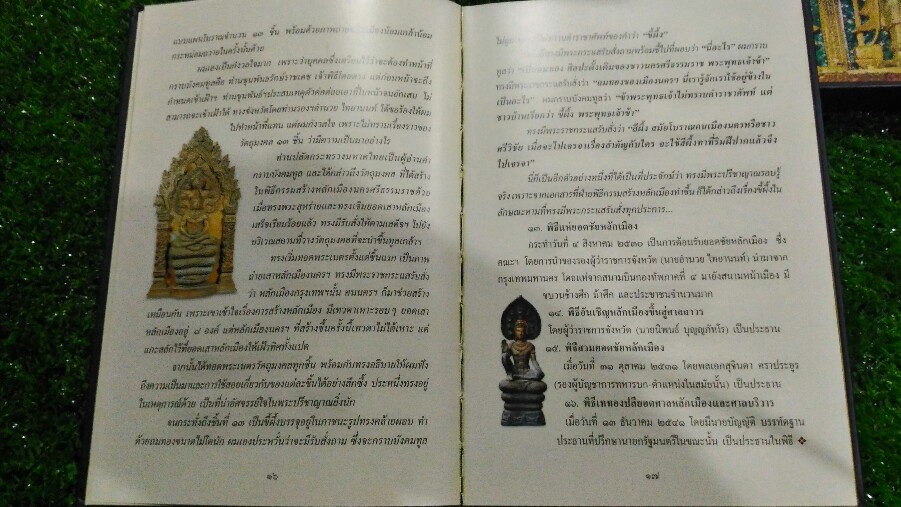 แบบแผนโบราณจำนวน ๑๓ ชิ้น พร้อมด้วยภาพถ่าย
กระหม่อมถวายในครั้งนั้นด้วย
ผมเองเป็นกังวลใจมาก เพราะว่าบุคคลซึ่งเตรียมไว้ว่าจะต้องทำหน้าที่
กราบบังคมทูลคือ ท่านขุนพันธรักษ์ราชเดช เจ้าพิธีโดยตรง แต่ก่อนหน้าจะถึง
กำหนดเข้าเฝ้าฯ ท่านขุนพันธ์ฯประสบเหตุตัวต่อต่อยเอาที่ใบหน้าจนอักเสบ ไม่
สามารถจะเข้าเฝ้าได้ ทางจังหวัดโดยท่านรองฯอำนวย ไทยานนท์ ได้ขอร้องให้ผม
ไปทำหน้าที่แทน แต่ผมกังวลใจ เพราะไม่ทราบเรื่องราวของ
วัตถุมงคล ๑๓ ชิ้น ว่ามีความเป็นมาอย่างไร
ท่านปลัดกระทรวงมหาดไทยเป็นผู้อ่านคำ
กราบบังคมทูล และได้กล่าวถึงวัตถุมงคล ที่ได้สร้าง
ในพิธีกรรมสร้างหลักเมืองนครศรีธรรมราชด้วย
เมื่อทรงพระสุหร่ายและทรงเจิมยอดเสาหลักเมือง
เสร็จเรียบร้อยแล้ว ทรงมีรับสั่งให้ตามเสด็จฯ ไปยัง
บริเวณสถานที่วางวัตถุมงคลที่จะนำขึ้นทูลเกล้าฯ
ทรงเริ่มทอดพระเนตรตั้งแต่ชิ้นแรก เป็นภาพ
ถ่ายเสาหลักเมืองนครฯ ทรงมีพระราชกระแสรับสั่ง
ว่า หลักเมืองกรุงเทพฯนั้น คนนครฯ ก็มาช่วยสร้าง
เหมือนกัน เพราะเขาเข้าใจเรื่องการสร้างหลักเมือง มีเทวดาเหาะรอบ ๆ ยอดเสา
หลักเมืองอยู่ ๘ องค์ แต่หลักเมืองนครฯ ที่สร้างขึ้นครั้งนี้เทวดาไม่ใช้เหาะ แต่
แกะสลักไว้ที่ยอดเสาหลักเมืองให้เฝ้าทิศแปดทิศ
จากนั้นได้ทอดพระเนตรวัตถุมงคลทุกชิ้น พร้อมกับทรงอธิบายให้ผมฟัง
ถึงความเป็นมาและการใช้สอยเกี่ยวกับของแต่ละชิ้นได้อย่างลึกซึ้ง ประหนึ่งทรงอยู่
ในเหตุการณ์ด้วย เป็นที่น่าอัศจรรย์ใจในพระปรีชาญาณยิ่งนัก
จนกระทั่งถึงชิ้นที่ ๑๓ เป็นขี้ผึ้งบรรจุอยู่ในภาชนะรูปทรงคล้ายผอบ ทำ
ด้วยถมทองขนาดไม่โตนัก ผมเองประหวั่นว่าจะมีรับสั่งถาม ซึ่งจะกราบบังคมทูล
๑๖
คำราชาศัพท์ของคำว่า “ขี้ผึ้ง”
ทรงมีพระกระแสรับสั่งถามพร้อมชี้ไปที่ผอบว่า “นี่อะไร” ผมกราบ
ทูลว่า “เป็นถมทอง ศิลปะดั้งเดิมของชาวนครศรีธรรมราช พระพุทธเจ้าข้า”
ทรงมีพระกระแสรับสั่งว่า “ถมทองของเมืองนครฯ นี่เรารู้จักเราใช้อยู่ข้างใน
เป็นอะไร” ผมกราบบังคมทูลว่า “ข้าพระพุทธเจ้าไม่ทราบคำราชาศัพท์ แต่
ชาวบ้านเรียกว่า ขี้ผึ้ง พระพุทธเจ้าข้า”
ทรงมีพระราชกระแสรับสั่งว่า “สีผึ้ง สมัยโบราณคนเมืองนครหรือชาว
ศรีวิชัย เมื่อจะไปเจรจาเรื่องสำคัญกับใคร จะใช้สีผึ้งทาที่ริมฝีปากแล้วจึง
ไปเจรจา”
นี่ก็เป็นอีกตัวอย่างหนึ่งที่ได้เป็นที่ประจักษ์ว่า ทรงมีพระปรีชาญาณรอบรู้
จริงเพราะจากเอกสารที่ฝ่ายพิธีกรรมสร้างหลักเมืองทำขึ้น ก็ได้กล่าวถึงเรื่องขี้ผึ้งใน
ลักษณะตามที่ทรงมีพระกระแสรับสั่งทุกประการ...
๑๓. พิธีแห่ยอดชัยหลักเมือง
กระทำวันที่ ๔ สิงหาคม ๒๕๓๐ เป็นการต้อนรับยอดชัยหลักเมือง ซึ่ง
คณะฯ โดยการนำของรองผู้ว่าราชการจังหวัด (นายอำนวย ไทยานนท์) นำมาจาก
กรุงเทพมหานคร โดยแห่จากสนามบินกองทัพภาคที่ ๔ มายังสนามหน้าเมือง มี
ขบวนช้างศึก ม้าศึก และประชาชนจำนวนมาก
๑๔. พิธีอันเชิญหลักเมืองขึ้นสู่ศาลถาวร
โดยผู้ว่าราชการจังหวัด (นายนิพนธ์ บุญญภัทโร) เป็นประธาน
๑๕. พิธีสวมยอดชัยหลักเมือง
เมื่อวันที่ ๓๑ ตุลาคม ๒๕๓๑ โดยพลเอกสุจินดา คราประยูร
(รองผู้บัญชาการทหารบก-ตำแหน่งในสมัยนั้น) เป็นประธาน
๑๖. พิธีเททองปลียอดศาลหลักเมืองและศาลบริวาร
เมื่อวันที่ ๑๓ ธันวาคม ๒๕๔๑ โดยมีนายบัญญัติ บรรทัดฐาน
ประธานที่ปรึกษานายกรัฐมนตรีในขณะนั้น เป็นประธานในพิธี ❖
๑๗